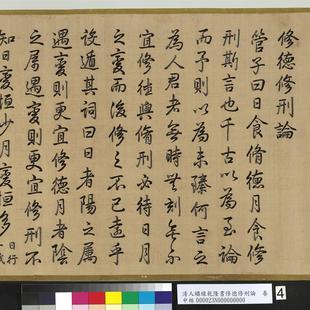 修德修刑論
管子曰日食脩德月食脩
刑斯言也千古以為至論
而予則以為未臻何言之
為人君者無時無刻不
宜修德與脩刑必待日月
之變而後修之不已遠乎
設遁其詞曰日者陽之属
遇變則更宜修德月者陰
之属遇變則更宜修刑不
知日變恒少月變恒多 日行
清人緙絲乾隆書修德修刑論 卷
中絲 000023N000000000
4